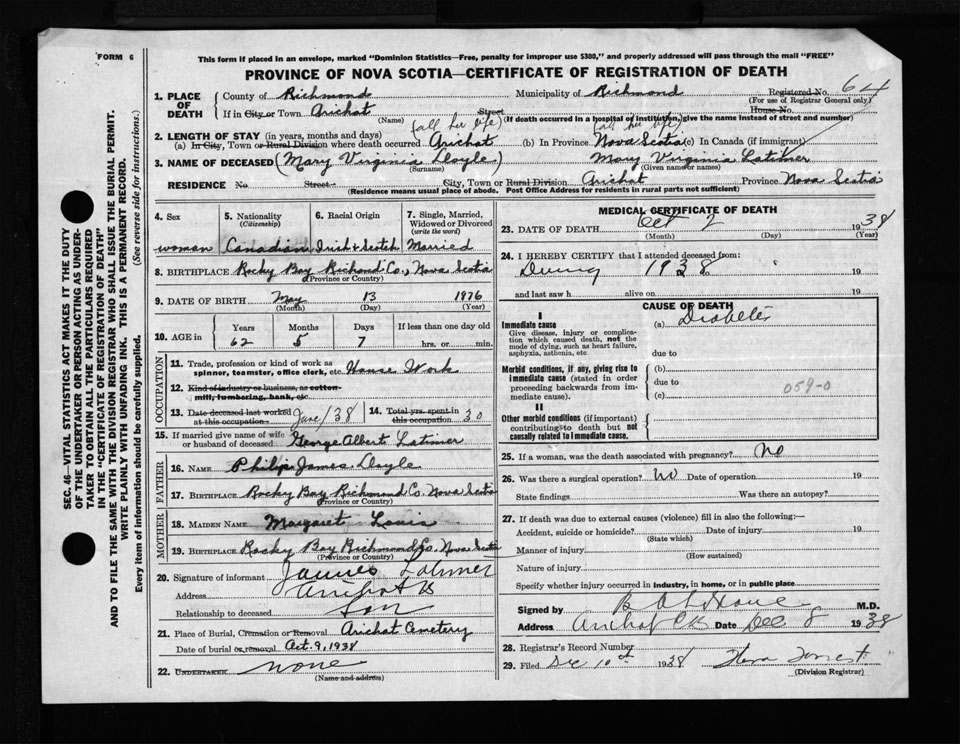 FORM 6
This form if placed in an envelope, marked "Dominion Statistics—Free, penalty for improper use $300," and properly addressed will pass through the mail "FREE"
PROVINCE OF NOVA SCOTIA—CERTIFICATE OF REGISTRATION OF DEATH
SEC. 46—VITAL STATISTICS ACT MAKES IT THE DUTY
OF THE UNDERTAKER OR PERSON ACTING AS UNDER-
TAKER TO OBTAIN ALL THE PARTICULARS REQUIRED
IN THE "CERTIFICATE OF REGISTRATION OF DEATH"
AND TO FILE THE SAME WITH THE DIVISION REGISTRAR WHO SHALL ISSUE THE BURIAL PERMIT.
WRITE PLAINLY WITH UNFADING INK. THIS IS A PERMANENT RECORD.
Every item of information should be carefully supplied. (See reverse side for instructions.)
1. PLACE OF DEATH County of Richmond Municipality of Richmond Registered No. 64
(For use of Registrar General only)
If in City or Town Arichat Street House No.
(Name) (If death occurred in a hospital or institution, give the name instead of street and number)
2. LENGTH OF STAY (in years, months and days) (all her life) (all her life)
(a) In City, Town or Rural Division where death occurred Arichat (b) In Province Nova Scotia (c) In Canada (if immigrant)
3. NAME OF DECEASED (Mary Virginia Doyle) Mary Virginia Latimer
(Surname) (Given name or names)
RESIDENCE No. Street City, Town or Rural Division Arichat Province Nova Scotia
(Residence means usual place of abode. Post Office Address for residents in rural parts not sufficient)
4. Sex 5. Nationality (Citizenship) 6. Racial Origin 7. Single, Married, Widowed or Divorced (write the word)
woman Canadian Irish & Scotch Married
8. BIRTHPLACE Rocky Bay Richond Co., Nova Scotia
(Province or Country)
9. DATE OF BIRTH May 13 1876
(Month) (Day) (Year)
10. AGE in Years Months Days If less than one day old
62 5 7 hrs. or min.
OCCUPATION
11. Trade, profession or kind of work as
spinner, teamster, office clerk, etc. House Work
12. Kind of industry or business, as cotton-
mill, lumbering, bank, etc.
13. Date deceased last worked at this occupation June/38 14. Total yrs. spent in this occupation 30
15. If married give name of wife or husband of deceased George Albert Latimer
FATHER
16. NAME Philip James Doyle
17. BIRTHPLACE Rocky Bay Richmond Co. Nova Scotia
(Province or Country)
MOTHER
18. MAIDEN NAME Margaret Louis
19. BIRTHPLACE Rocky Bay Richmond Co. Nova Scotia
(Province or Country)
20. Signature of informant James Latimer
Address Arichat CB
Relationship to deceased Son
21. Place of Burial, Cremation or Removal Arichat Cemetery
Date of burial or removal Oct. 9, 1938
22. UNDERTAKER none
(Name and address)
MEDICAL CERTIFICATE OF DEATH
23. DATE OF DEATH Oct 7 1938
(Month) (Day) (Year)
24. I HEREBY CERTIFY that I attended deceased from:
During 1938 19
and last saw h alive on 19
CAUSE OF DEATH
I
Immediate cause (a) Diabetes
Give disease, injury or complica-
tion which caused death, not the
mode of dying, such as heart failure,
asphyxia, asthenia, etc
due to
Morbid conditions, if any, giving rise to (b)
immediate cause (stated in order
proceeding backwards from im-
mediate cause).
due to
(c) 059-0
II
Other morbid conditions (if important)
contributing to death but not
causally related to immediate cause.
25. If a woman, was the death associated with pregnancy? No
26. Was there a surgical operation? No Date of operation 19
State findings Was there an autopsy?
27. If death was due to external causes (violence) fill in also the following:—
Accident, suicide or homicide? Date of injury 19
(State which)
Manner of injury
(How sustained)
Nature of injury
Specify whether injury occurred in industry, in home, or in public place
Signed by M.D.
Address Arichat CB Date Dec 8 1938
28. Registrar's Record Number
29. Filed Dec 10th 1938
(Division Registrar)